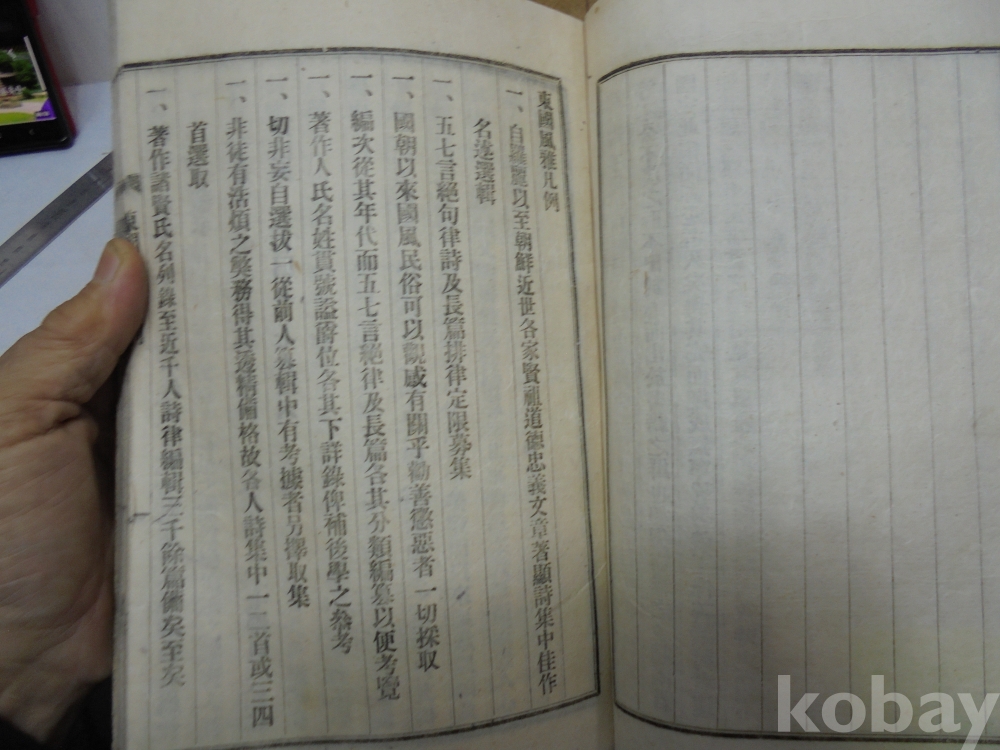 東國風雅凡例
一、自羅麗以至朝鮮近世各家賢祖道德忠義文章著顯詩集中佳作
名逸選輯
一、五七言絶句律詩及長篇排律定限募集
一、國朝以來國風民俗可以觀感有關乎勸善懲惡者一切採取
一、編次從其年代而五七言絶律及長篇各其分類編纂以便考覽
一、著作人氏名姓貫號謚爵位各其下詳錄俾補後學之參考
一、切非妄自選拔一從前人纂輯中有考據者另擇取集
一、非徒有浩煩之弊務得其選精備格故各人詩集中一二首或三四
首選取
一、著作諸賢氏名列錄至近千人詩律編輯三千餘篇備矣至矣
kobay